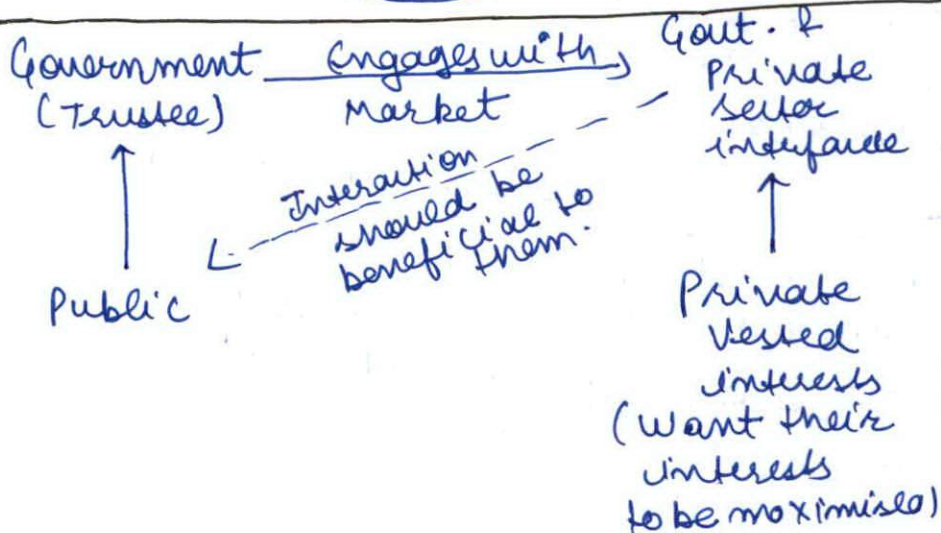 Government
(Trustee)
Engages with
Market
Govt. &
Private
sector
interface
Interaction
should be
beneficial to
them.
Public
Private
Vested
interests
(Want their
interests
to be maximised)